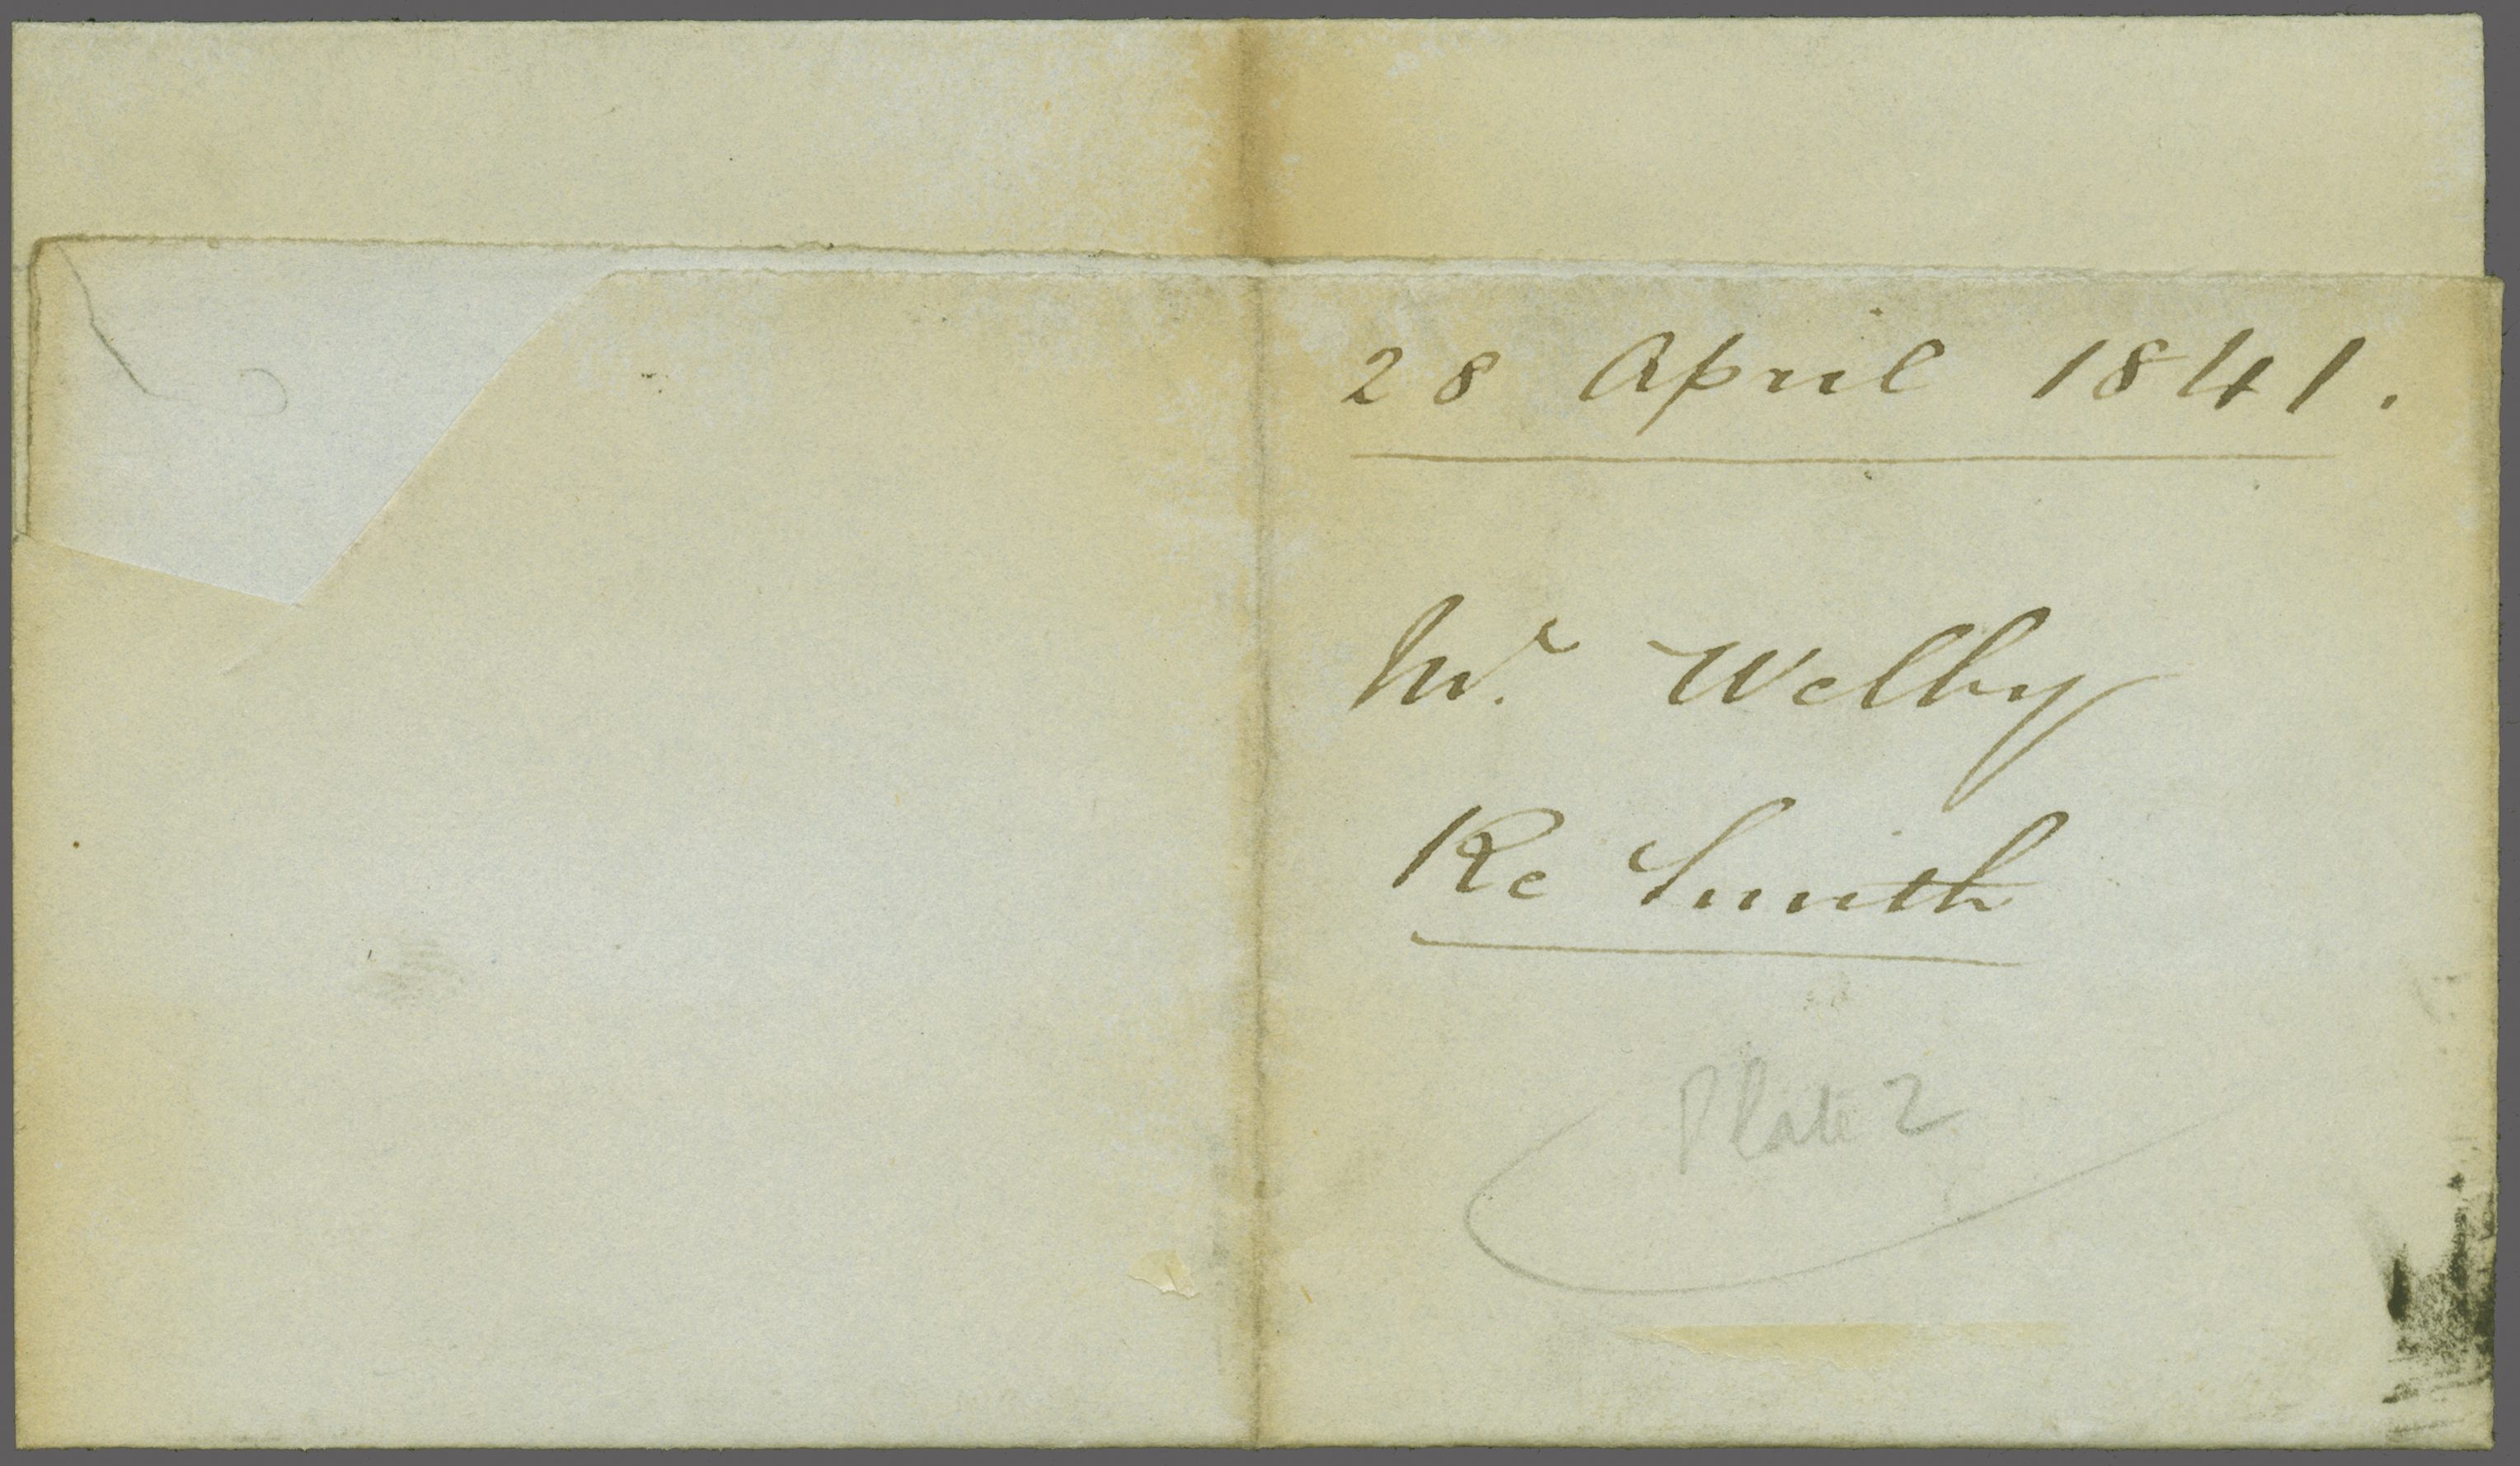 28 April 1841.
Mr. Welby
Re Smith
Plate 2